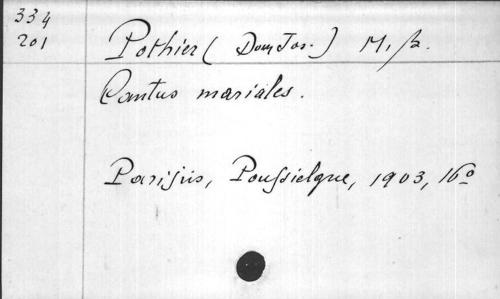 334
201
Pothier (Dom Jos.) M. B.
Cantus mariales.
Parisiis, Poussielgue, 1903, 16º